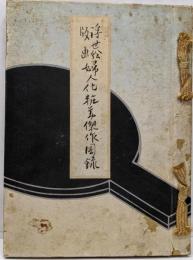 浮世絵
版画
婦人化粧美傑作図録